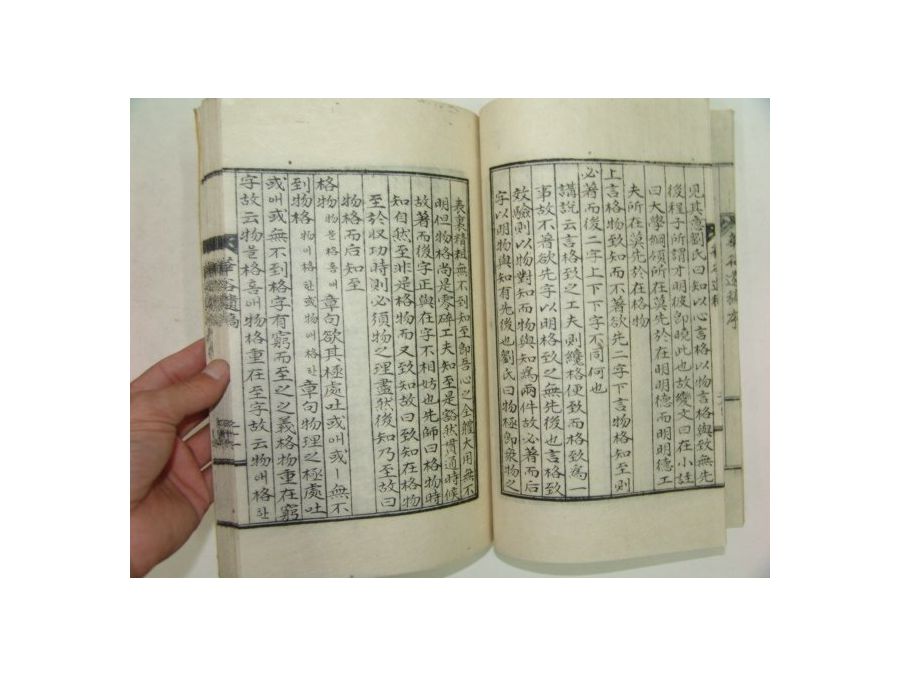 見其意劉氏曰知以心言格以物言格與致無先
後程子所謂才明彼卽曉此也故變文曰在小註
曰大學綱領所在莫先於在明明德而明明德工
夫所在莫先於在格物
上言格物致知而不著欲先二字下言物格知至則
必著而後二字上下下字不同何也
講說云言格致之工夫則纔格便致而格致爲一
事故不著欲先字以明格致之無先後也言格致
效驗則以物對知而物與知爲兩件故必著而后
字以明物與知有先後也劉氏曰物極卽衆物之
表裏精粗無不到知至卽吾心之全體大用無不
明但物格尚是零碎工夫知至是豁然貫通時候
故著而後字正與在字不相妨也先師曰格物時
知自然至非是格物而又致知故曰致知在格物
至於収功時則必須物之理盡然後知乃至故曰
物格而后知至
格物 物을格홈애 章句欲其極處吐或애或ㅣ無不
到物格 物에格한或物애格한 章句物理之極處吐
或애或無不到格字有窮而至之之義格物重在窮
字故云物을格홈애物格重在至字故云物애格한